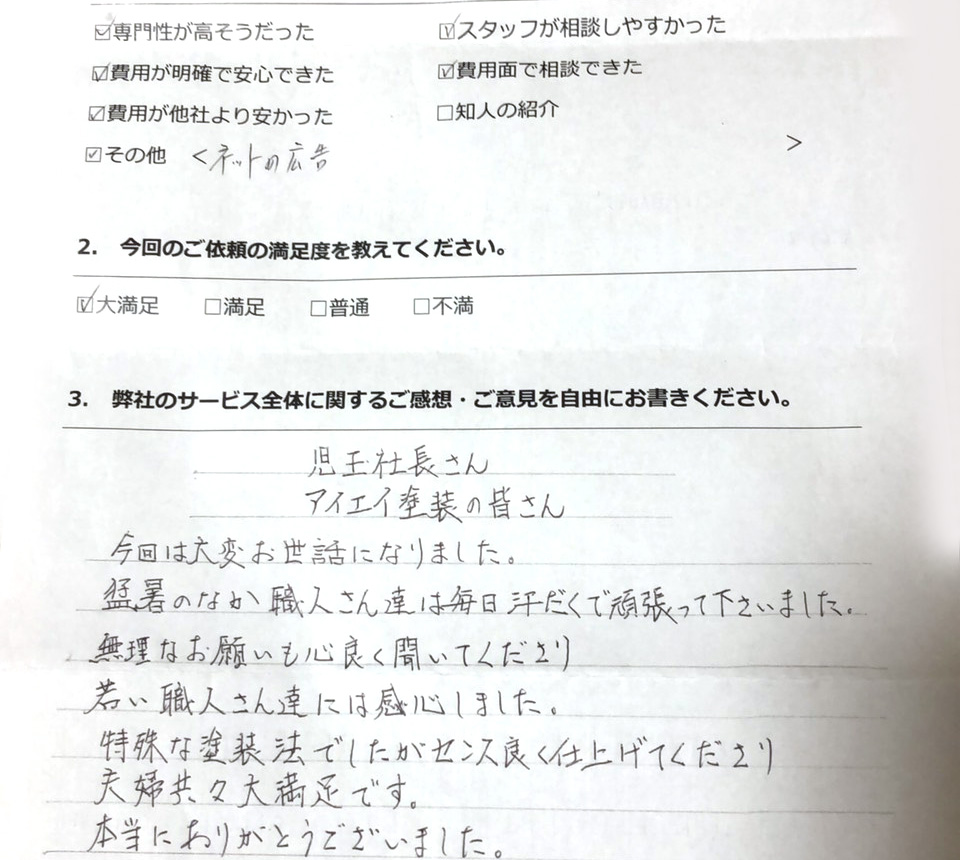 ☑専門性が高そうだった ☑スタッフが相談しやすかった
☑費用が明確で安心できた ☑費用面で相談できた
☑費用が他社より安かった □知人の紹介
☑その他 <ネットの広告 >
2. 今回のご依頼の満足度を教えてください。
☑大満足 □満足 □普通 □不満
3. 弊社のサービス全体に関するご感想・ご意見を自由にお書きください。
児玉社長さん
アイエイ塗装の皆さん
今回は大変お世話になりました。
猛暑のなか職人さん達は毎日汗だくで頑張って下さいました。
無理なお願いも心良く聞いてくださり
若い職人さん達には感心しました。
特殊な塗装法でしたがセンス良く仕上げてくださり
夫婦共々大満足です。
本当にありがとうございました。